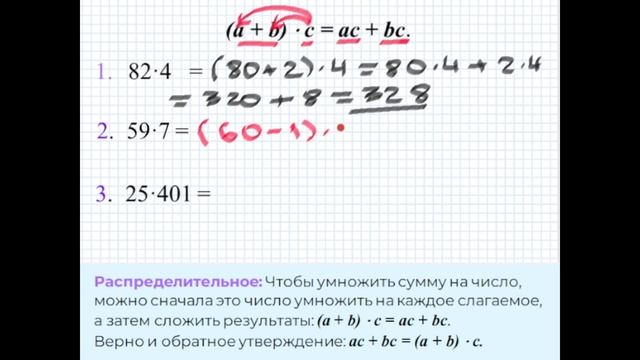 (a + b) · c = ac + bc.
1. 82·4 = (80+2)·4 = 80·4 + 2·4
= 320 + 8 = 328
2. 59·7 = (60-1)·
3. 25·401 =
Распределительное: Чтобы умножить сумму на число,
можно сначала это число умножить на каждое слагаемое,
а затем сложить результаты: (a + b) · c = ac + bc.
Верно и обратное утверждение: ac + bc = (a + b) · c.